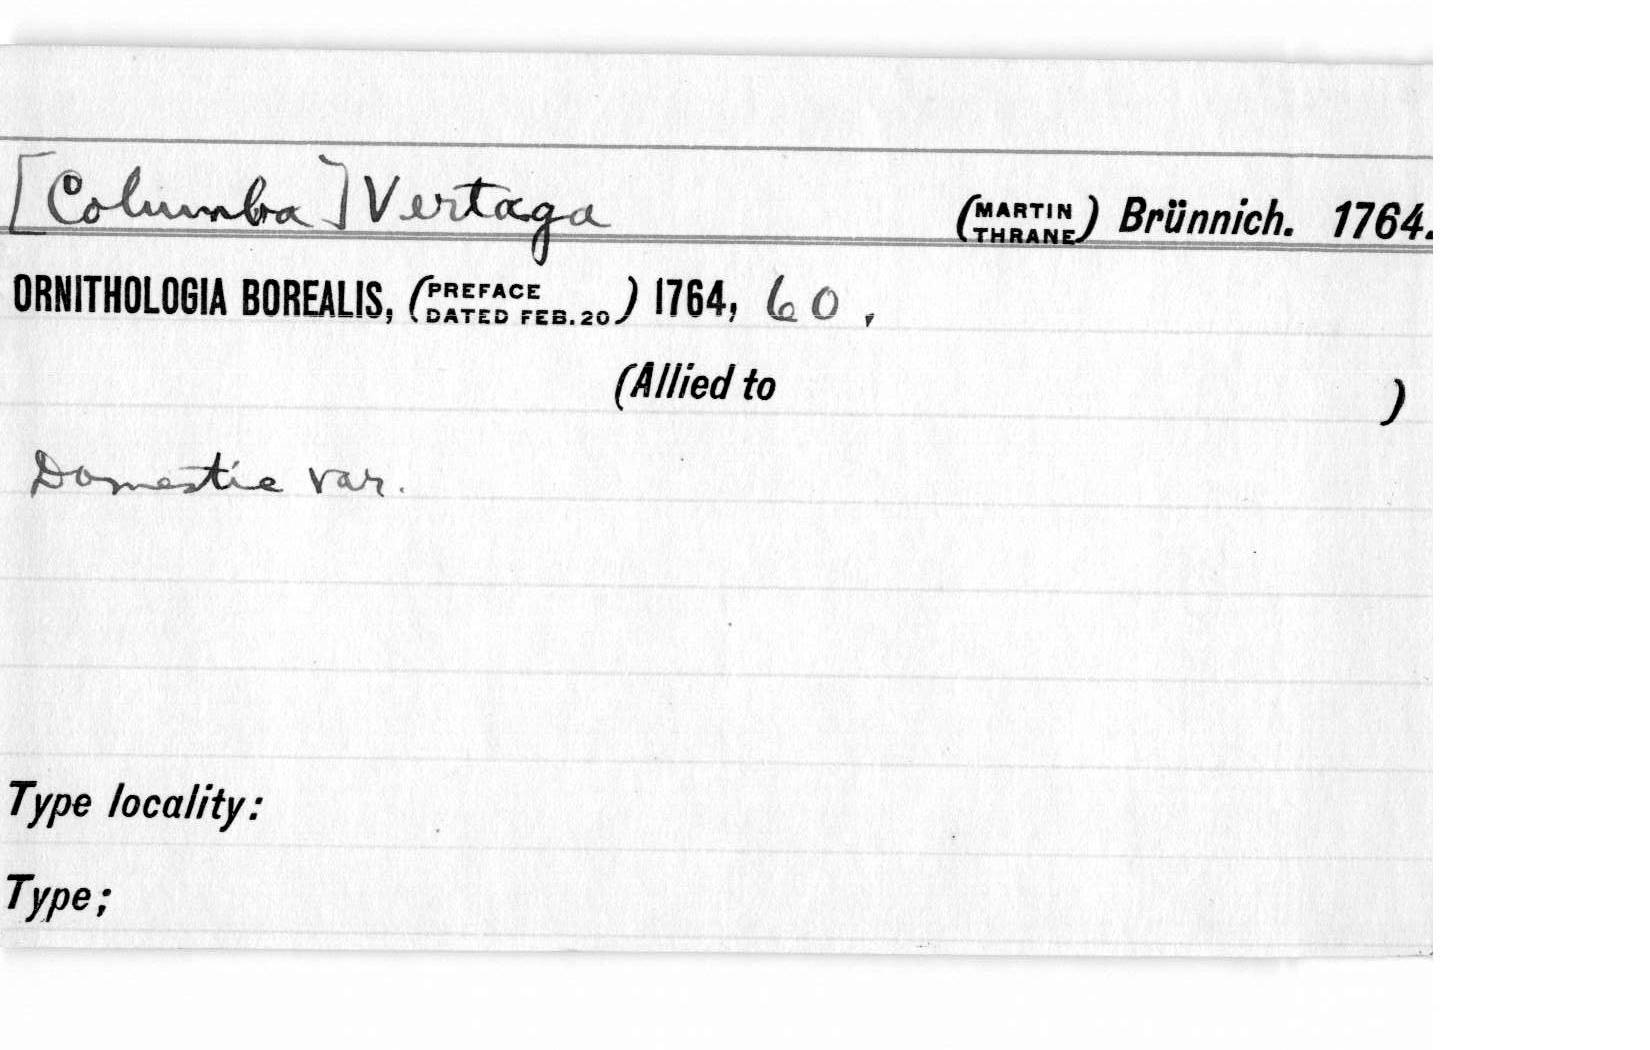 [Columba] Vertaga (MARTIN THRANE) Brünnich. 1764.
ORNITHOLOGIA BOREALIS, (PREFACE DATED FEB. 20) 1764, 60,
(Allied to )
Domestic var.
Type locality:
Type;